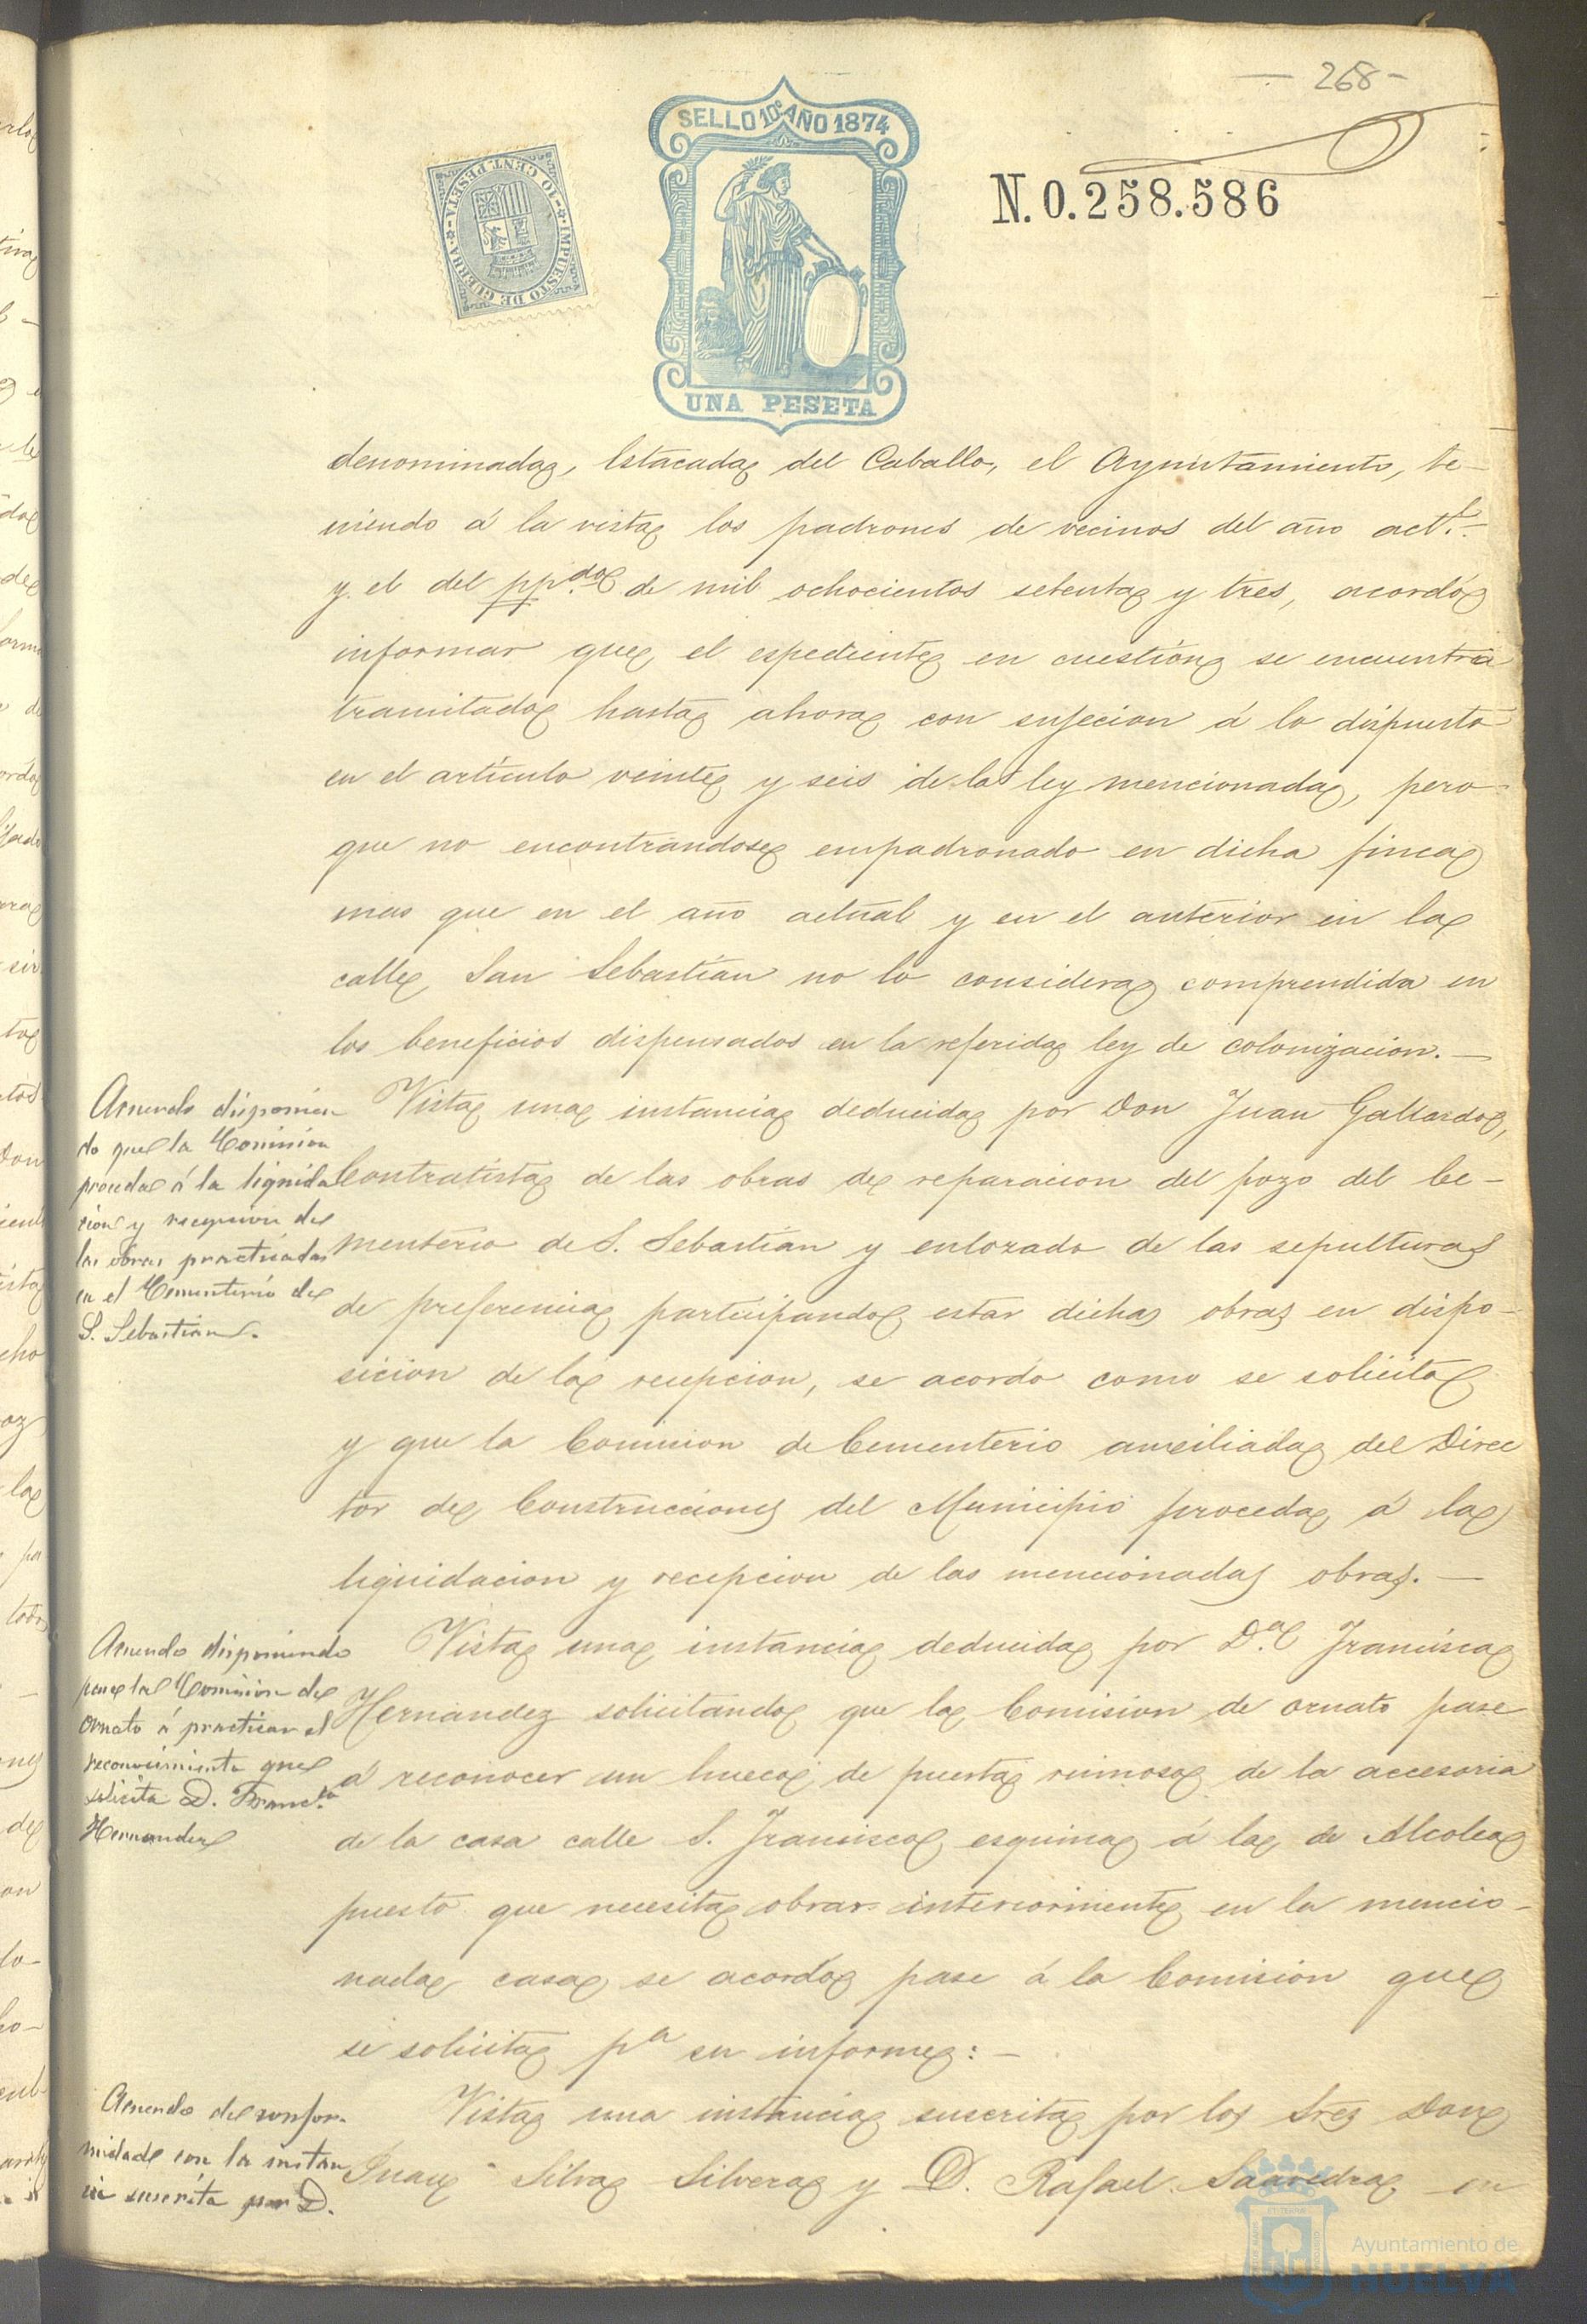 - 268 -
SELLO 10º AÑO 1874
IMPUESTO DE GUERRA
10 CENT. PESETA
N. 0.258.586
UNA PESETA
denominada, Estacada del Caballo, el Ayuntamiento, te-
niendo á la vista los padrones de vecinos del año act.l
y el del pp.do de mil ochocientos setenta y tres, acordó
informar que el espediente en cuestion se encuentra
tramitado hasta ahora con sujecion á lo dispuesto
en el artículo veinte y seis de la ley mencionada, pero
que no encontrandose empadronado en dicha finca
mas que en el año actual y en el anterior en la
calle San Sebastian no lo considera comprendida en
los beneficios dispensados en la referida ley de colonizacion.-
Acuerdo disponien
do que la Comision
proceda á la liquida
cion y recepcion de
las obras practicadas
en el Cementerio de
S. Sebastian.
Vista una instancia deducida por Don Juan Gallardo,
Contratista de las obras de reparacion del pozo del Ce-
menterio de S. Sebastian y enlozado de las sepulturas
de preferencia participando estar dichas obras en dispo-
sicion de la recepcion, se acordó como se solicita
y que la Comision de Cementerio auxiliada del Direc
tor de Construcciones del Municipio proceda á la
liquidacion y recepcion de las mencionadas obras.-
Acuerdo disponiendo
pase la Comision de
ornato á practicar el
reconocimiento que
solicita D. Franc.ca
Hernandez
Vista una instancia deducida por D.a Francisca
Hernandez solicitando que la Comision de ornato pase
á reconocer un hueco de puerta ruinosa de la accesoria
de la casa calle S. Francisco esquina á la de Alcolea
puesto que necesita obrar interiormente en la mencio-
nada casa se acordó pase á la Comision que
se solicita pa su informe:-
Acuerdo de confor-
midad con la instan
cia suscrita por D.
Vista una instancia suscrita por los Sres Don
Juan Silva Silvera y D. Rafael Saavedra en
Ayuntamiento de
HUELVA